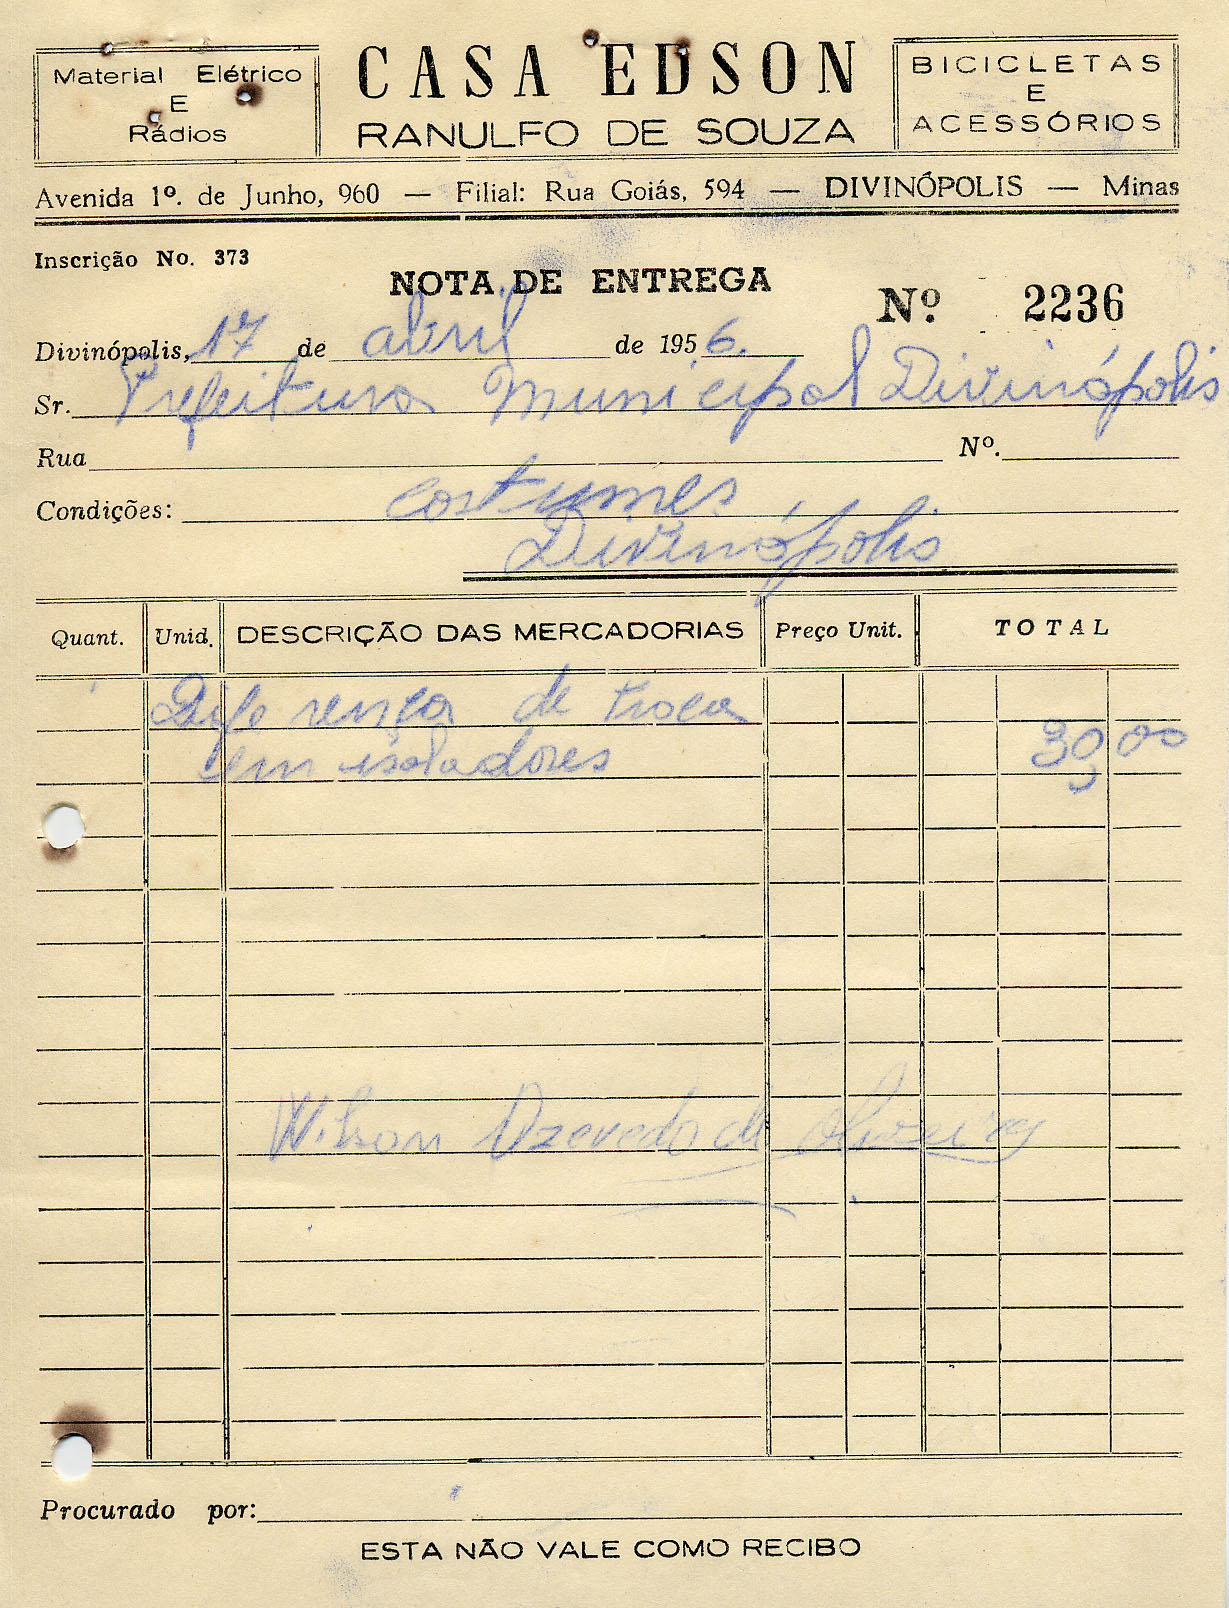 Material Elétrico
E
Rádios
CASA EDSON
RANULFO DE SOUZA
BICICLETAS
E
ACESSÓRIOS
Avenida 1º. de Junho, 960 — Filial: Rua Goiás, 594 — DIVINÓPOLIS — Minas
Inscrição No. 373
NOTA DE ENTREGA
Nº. 2236
Divinópolis, 17 de abril de 1956.
Sr. Prefeitura Municipal Divinópolis
Rua Nº.
Condições: costumes
Divinópolis
Quant. Unid. DESCRIÇÃO DAS MERCADORIAS Preço Unit. TOTAL
Diferença de troca
em isoladores 30,00
Wilson Azevedo de Oliveira
Procurado por:
ESTA NÃO VALE COMO RECIBO